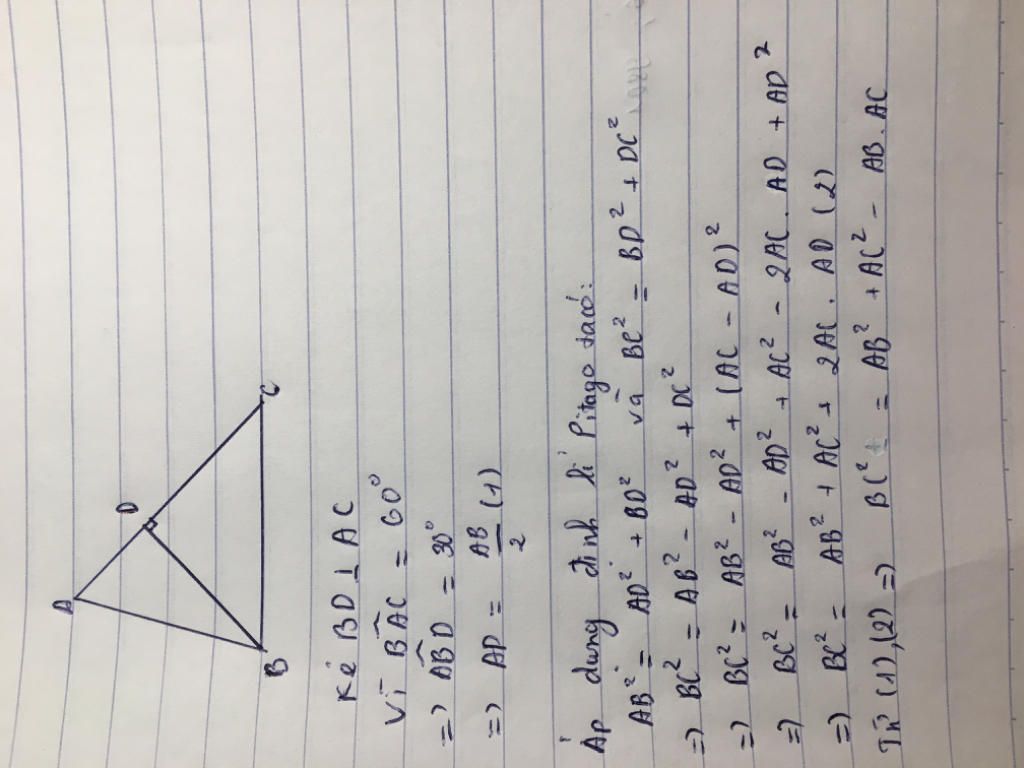 A
D
B
C
Kẻ BD ⊥ AC
Vì BÂC = 60°
=) ABD̂ = 30°
=) AD = AB/2 (1)
Áp dụng định lí Pitago ta có:
AB² = AD² + BD² và BC² = BD² + DC²
=) BC² = AB² - AD² + DC²
=) BC² = AB² - AD² + (AC - AD)²
=) BC² = AB² - AD² + AC² - 2AC. AD + AD²
=) BC² = AB² + AC² + 2AC. AD (2)
Từ (1),(2) =) BC² = AB² + AC² - AB.AC